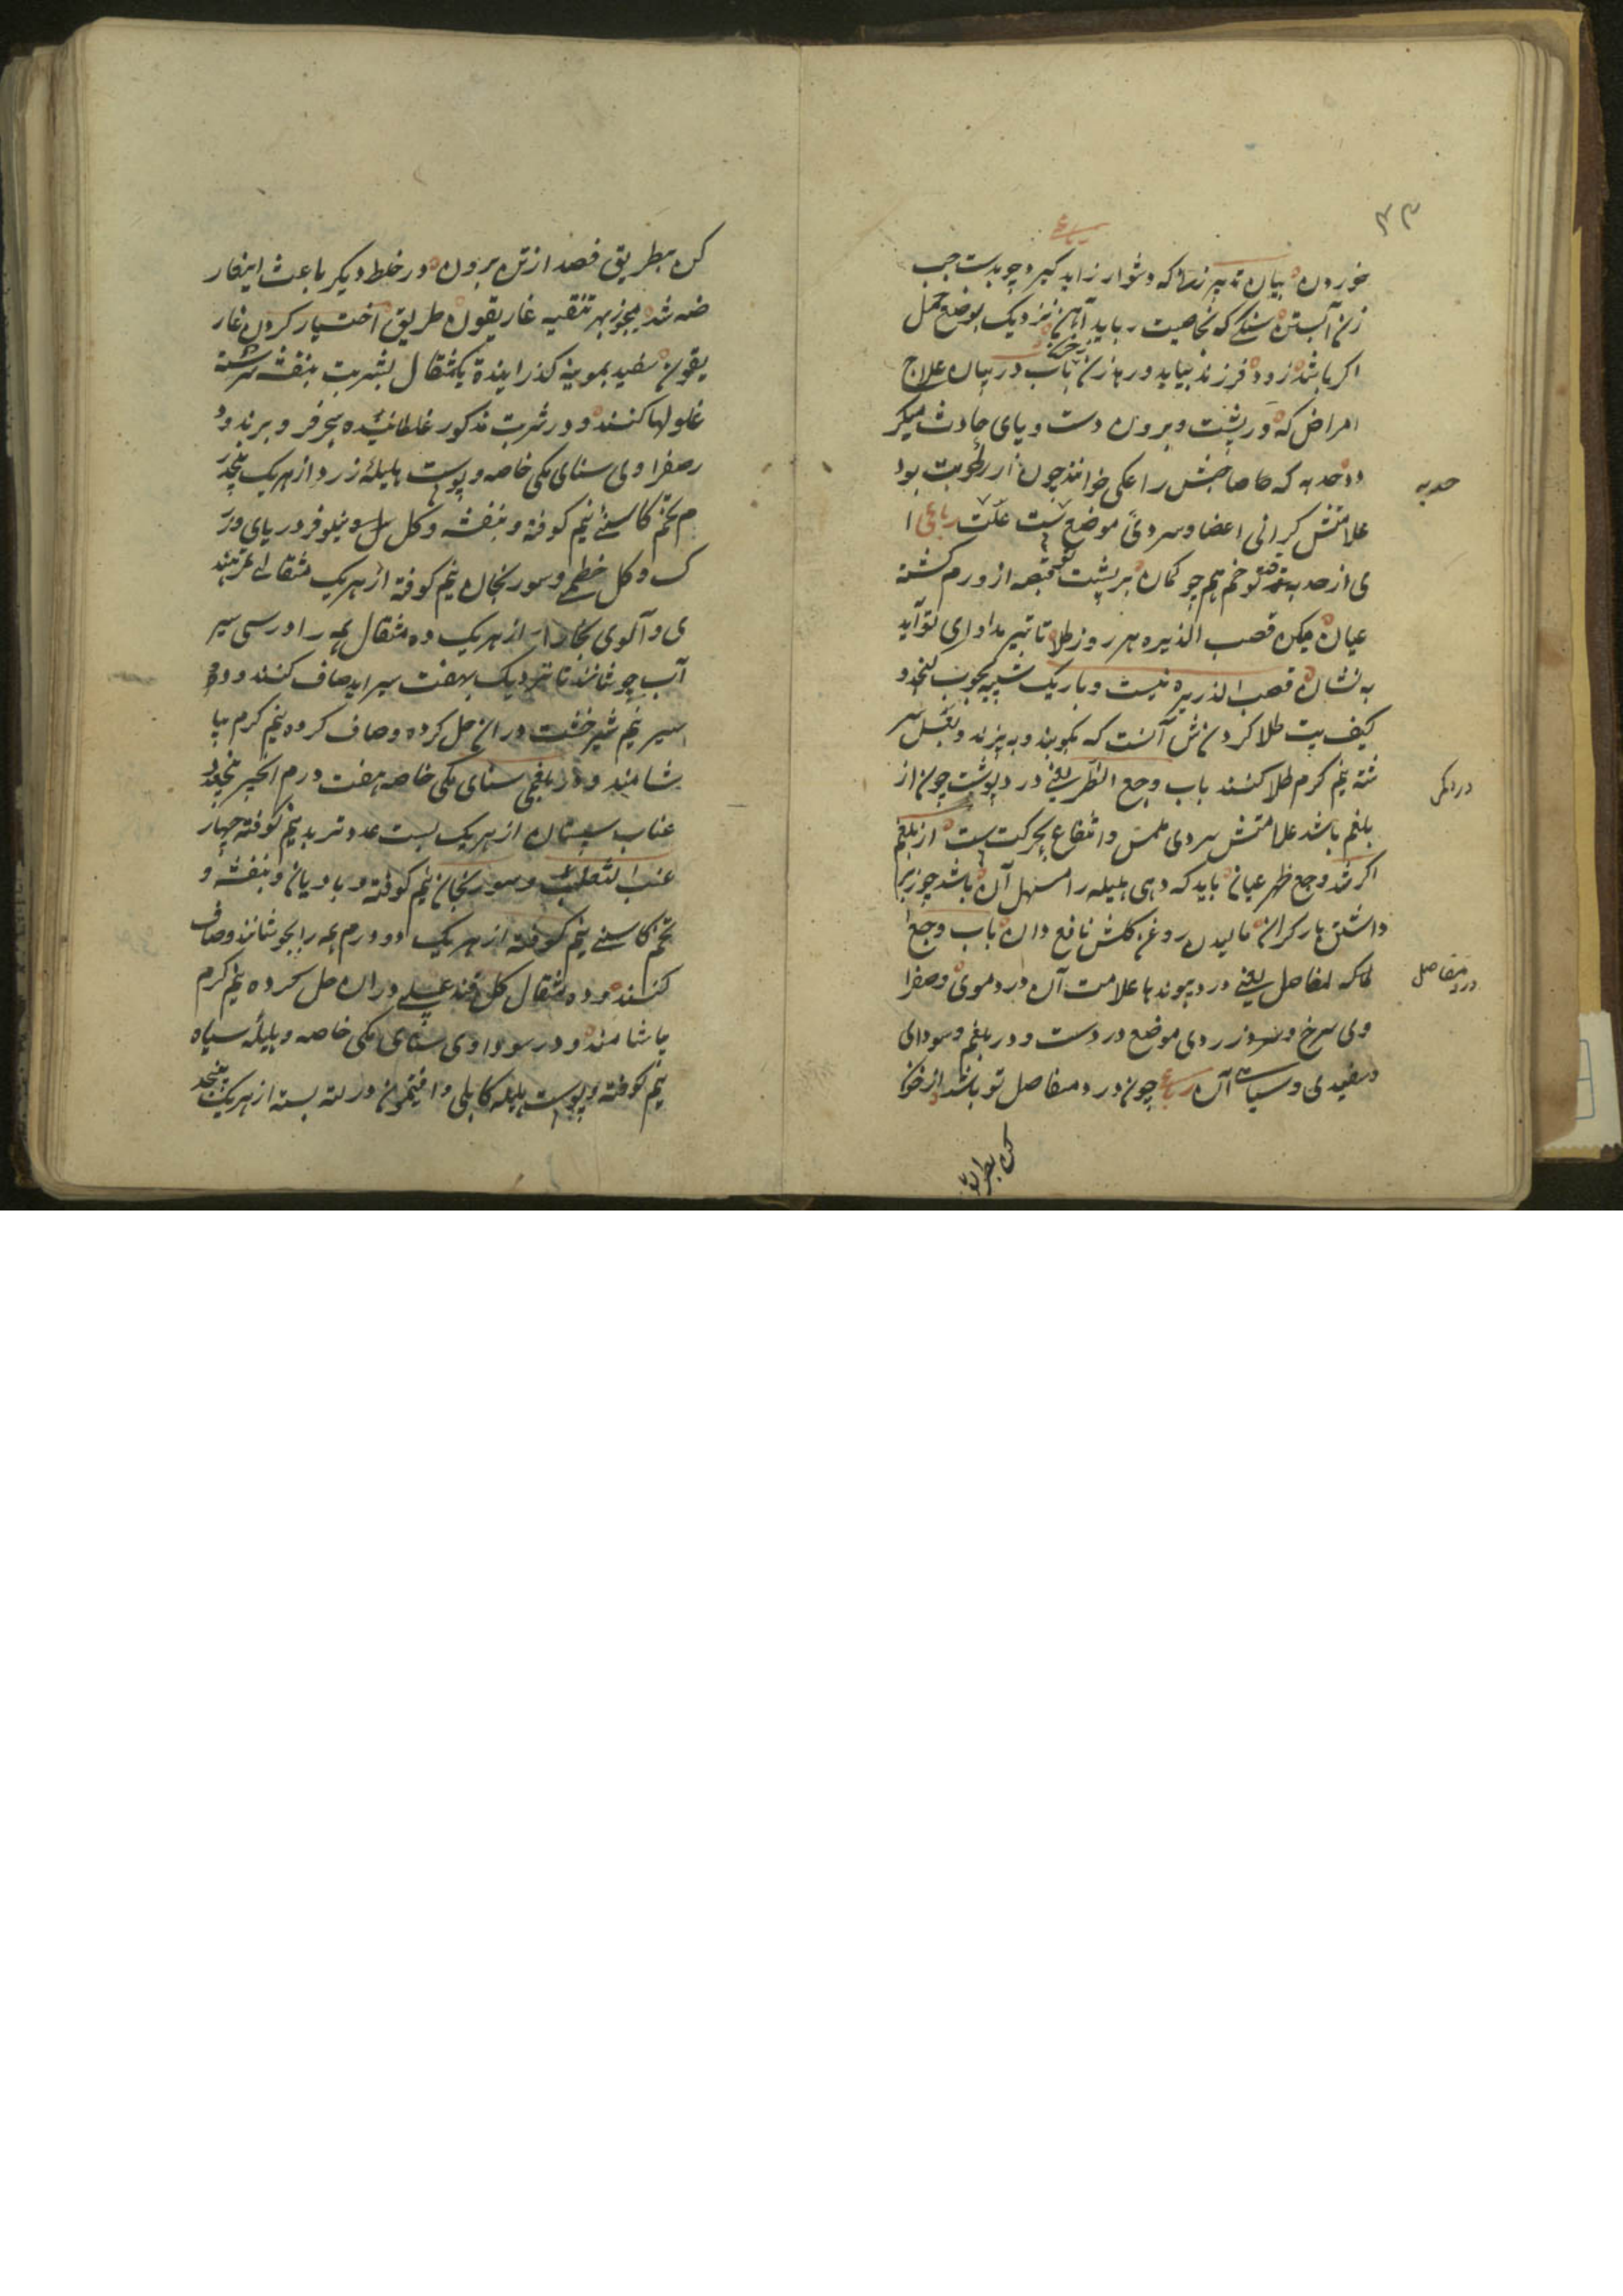 ۴۳
رباعی
خوردن بیان تدبیر زنها که دشوار زاید گیرد چو بدست چپ
زن آبستن سنگی که بخاصیت رباید آهن نزدیک بوضع حمل
اکر باشد زود فرزند بیاید ورهازن باب در بیان علاج
امراض که در پشت و برون دست و پای حادث میکر
دد حدبه که صاحبش را خوانند چون از رطوبت بود
علامتش کرانی اعضا و سردی موضع علت رباعی ا
ی از حدبه تو خم هم چو کمان بر پشت از ورم کشته
عیان میکن قصب الذیره هر روز طلا تا تیر مداوای تو آید
به نشان قصب الذریره نیست و باریک شبیه بچوب
کیفیت طلا کردنش آنست که بکوبند و به پزند و بعسل سر
شته نیم کرم طلا کنند باب وجع الظهر یعنی درد پشت چون از
بلغم باشد علامتش سردی ملمس و انتفاع بحرکت است از بلغم
اکر شد وجع ظهر عیان باید که دهی هلیله را مسهل آن باشد چو زبر
داشتن بار کران مالیدن روغن کلش نافع دان باب وجع
المفاصل یعنی درد پیوندها علامت آن در دموی و صفرا
وی سرخ و زردی موضع درد است و در بلغم و سودای
سفیدی و سیاهی آن رباعی چون درد مفاصل تو باشد از خون
حدبه
درد کمر
درد مفاصل
کن بطریق
کن بطریق فصد از تن برون در خلط دیگر باعث این عار
ضه شد بهر تنقیه غاریقون طریق اختیار کردن غار
یقون سفید بموینه کذرانیده یکمثقال بشربت بنفشه سرشته
غلولها کنند و در شربت مذکور غلطانیده فرو برند و د
ر صفراوی سنای مکی خاصه و پوست هلیله زرد از هریک پنجد
رم تخم کاسنی نیم کوفته و بنفشه و کل نیلوفر دریای
و کل خطمی و سورنجان نیم کوفته از هریک مثقالی تمرهند
ی و آلوی بخارا از هریک ده مثقال همه را در سی سیر
آب جوشانند تا نزدیک بهفت سیر آید صاف کنند و دو
سیر نیم شیرخشت در ان حل کرده و صاف کرده نیم کرم بیا
شامند و در بلغمی سنای مکی خاصه هفت درم انجیر پنجعدد
عناب سپستان از هریک بیست عدد تربد نیم کوفته چهار
عنب الثعلب و سورنجان نیم کوفته و بادیان و بنفشه و
تخم کاسنی نیم کوفته از هریک دو درم همه را بجوشانند و صاف
کنند و ده مثقال کل قند عسلی در ان حل کرده نیم کرم
بیاشامند و در سوداوی سنای مکی خاصه و هلیله سیاه
نیم کوفته و پوست هلیله کابلی و افتیمون در لته بسته از هریک پنجد